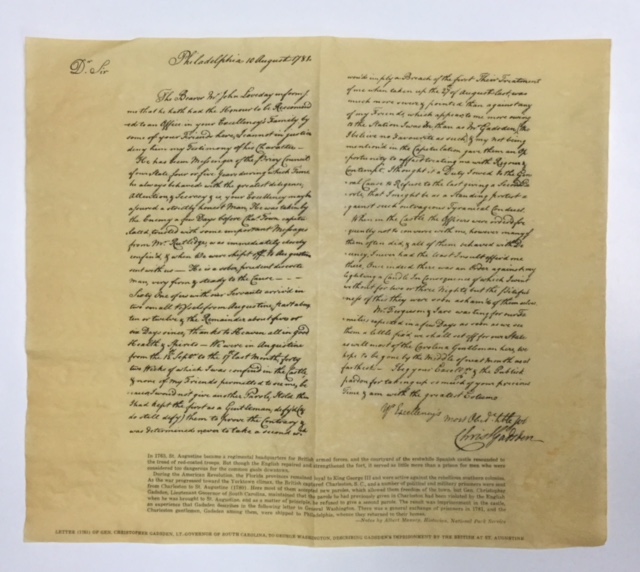 Philadelphia 10 August 1781.
Dr. Sir
The Bearer Mr. John Loveday informs
me that he hath had the Honour to be Recommend
ed to an Office in your Excellency's Family by
some of your Friends here, I cannot in justice
deny him my Testimony of his Character
He has been Messenger of the Privy Council
of our State four or five Years during which Time
he always behaved with the greatest diligence,
Attention & Secrecy & is your Excellency may be
assured a strictly honest Man. He was taken by
the Enemy a few Days before Cha Town capitu
lated, entrusted with some important Messages
from Mr. Rutledge, was immediately closely
confined & when We were shipt off to Augustine
sent with us He is a sober prudent discrete
man very firm & steady to the Cause
Sixty One of us with our Servants arrived in
from Augustine,
ten or twelve & the Remainder about five or
six Days since, thanks to Heaven all in good
Health & Spirits We were in Augustine
from the 15 Septr. to the 17 last Month, forty
two Weeks of which I was confined in the Castle
& none of my Friends permitted to see me, be
cause I would not give another Parole, I told them
I had kept the first as a Gentleman, defy'd &
do still defy them to prove the Contrary &
was determined never to take a second
would imply a Breach of the first Their Treatment
of me when taken up the 27 of August last, was
much more severe & pointed than against any
of my Friends, which appears to me more owing
to the Station I was in than as Mr. Gadsden,
I believe no Favourite as such, & my not being
mentioned in the Capitulation gave them an Op
portunity to affect treating me with Rigour &
Contempt, I thought it a Duty I owed to the Gen
eral Cause to Refuse to the last giving a Second Pa
role, that I might be as a Standing protest a
gainst such outrageous Tyranical Conduct.
When in the Castle the Officers were ordered fre
quently not to converse with me, however many of
them often did, & all of them behaved with De
cency, I never had the least Insult offer'd me
there, Once indeed there was an Order against my
lighting a Candle In Consequence of which I went
without for two or three Nights but the Pitiful
ness of this they were soon asham'd of themselves.
Mr. Ferguson & I are waiting for our Fa
milies expected in a few Days as soon as we see
them a little fix'd we shall set off for our State
as will most of the Carolina Gentlemen here, we
hope to be gone by the Middle of next Month at
farthest I beg your Excellency & the Publick
pardon for taking up so much of your precious
Time & am with the greatest Esteem
Yr Excellency's most Obedt. Hble Sert
Christ Gadsden
In 1763, St. Augustine became a regimental headquarters for British armed forces and the courtyard of the erstwhile Spanish castle resounded
to the tread of redcoat troops. But though the English repaired and strengthened the fort, it served as little more than a prison for men who were
considered too dangerous for the common gaols downtown.
During the American Revolution, the Florida provinces remained loyal to King George III and were active against the rebellious southern colonies.
As the war progressed toward the Yorktown climax, the British captured Charleston, S. C., and a number of political and military prisoners were sent
from Charleston to St. Augustine (1780). Here most of them accepted new paroles, which allowed them freedom of the town, but Gen. Christopher
Gadsden, Lieutenant Governor of South Carolina, maintained that the parole he had previously given in Charleston had been violated by the English
when he was brought to St. Augustine and as a matter of principle, he refused to give a second parole. The result was imprisonment in the castle,
an experience that Gadsden describes in the following letter to General Washington. There was a general exchange of prisoners in 1781, and the
Charleston gentlemen, Gadsden among them, were shipped to Philadelphia, whence they returned to their homes.
—Notes by Albert Manucy, Historian, National Park Service
LETTER (1781) OF GEN. CHRISTOPHER GADSDEN, LT. GOVERNOR OF SOUTH CAROLINA, TO GEORGE WASHINGTON, DESCRIBING GADSDEN'S IMPRISONMENT BY THE BRITISH AT ST. AUGUSTINE